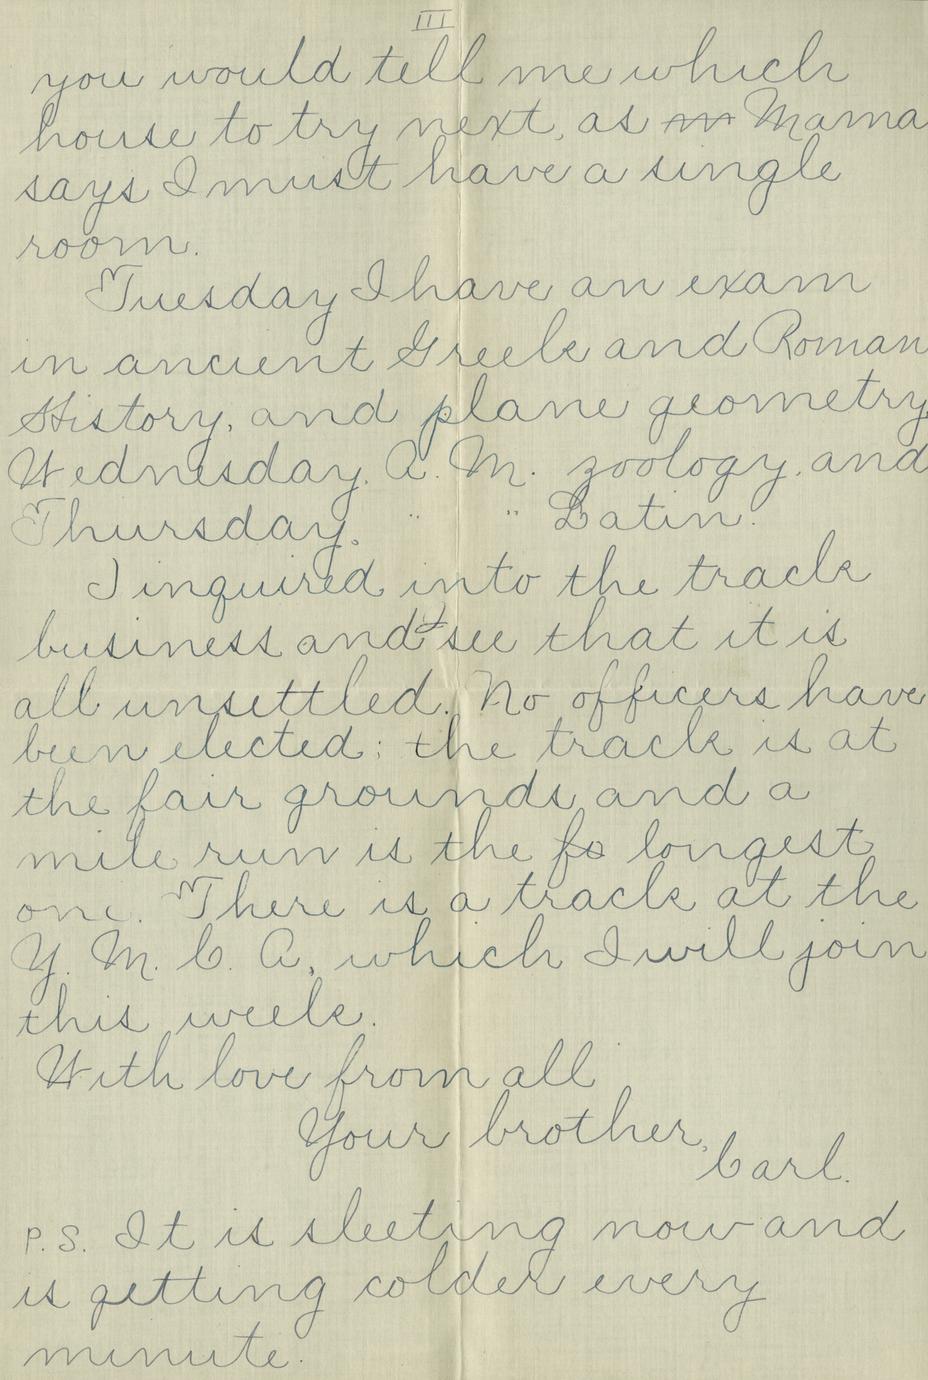 III
you would tell me which
house to try next, as m Mama
says I must have a single
room.
Tuesday I have an exam
in ancient Greek and Roman
History, and plane geometry,
Wednesday, A. M. zoology, and
Thursday. " " Latin.
I inquired into the track
business and I see that it is
all unsettled. No officers have
been elected; the track is at
the fair grounds and a
mile run is the fo longest
one. There is a track at the
Y. M. C. A., which I will join
this week.
With love from all
Your brother,
Carl.
P.S. It is sleeting now and
is getting colder every
minute.